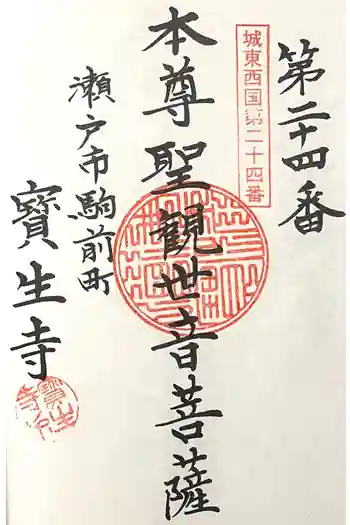 第二十四番
城東西国第二十四番
本尊聖観世音菩薩
瀬戸市駒前町
寳生寺